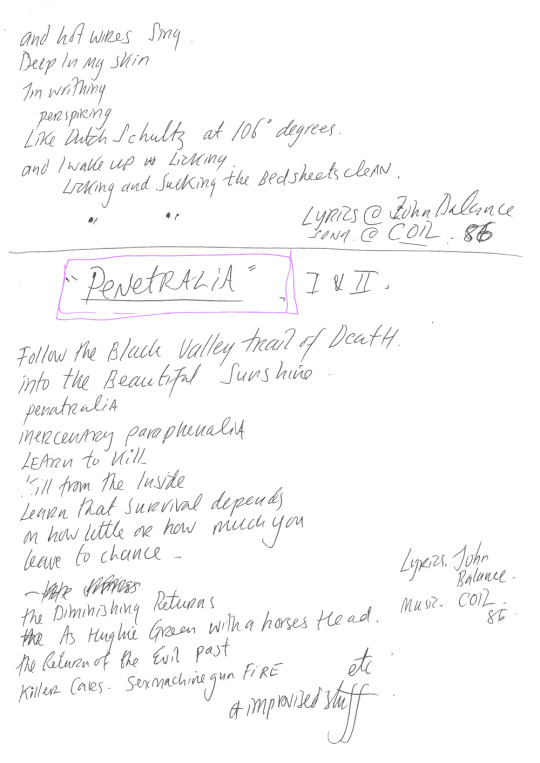 and hot wires sing.
Deep in my skin
I'm writhing
perspiring
Like Dutch Schultz at 106° degrees.
and I wake up licking.
Licking and sucking the bedsheets clean.
Lyrics @ John Balance
song. @ COIL. 86
"PENETRALIA" I & II.
Follow the Black Valley trail of Death.
into the Beautiful Sunshine.
penatralia
mercenary paraphenalia
Learn to kill
Kill from the Inside
Learn that survival depends
on how little or how much you
leave to chance -
Lyrics. John
Balance.
Music. COIL.
86.
the Diminishing Returns
As Hughie Green with a horses Head.
the Return of the Evil past
Killer Cars. Sexmachinegun FIRE
etc
& improvised stuff